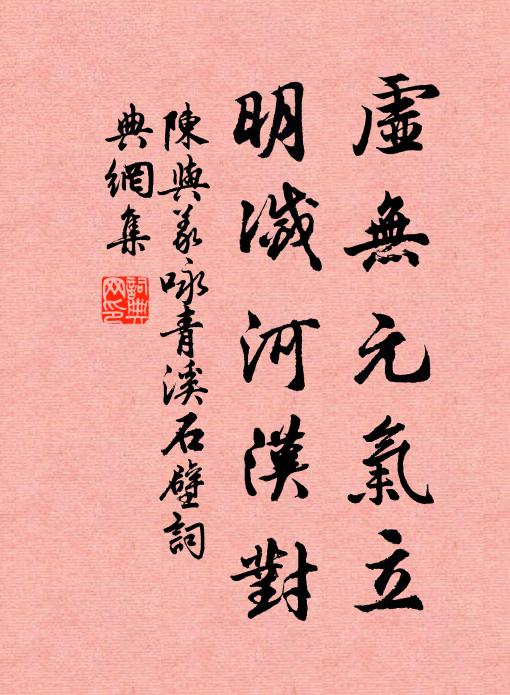 虛無元氣立
明滅河漢對
陳與義咏青溪石壁詞
典網集
詞典網印